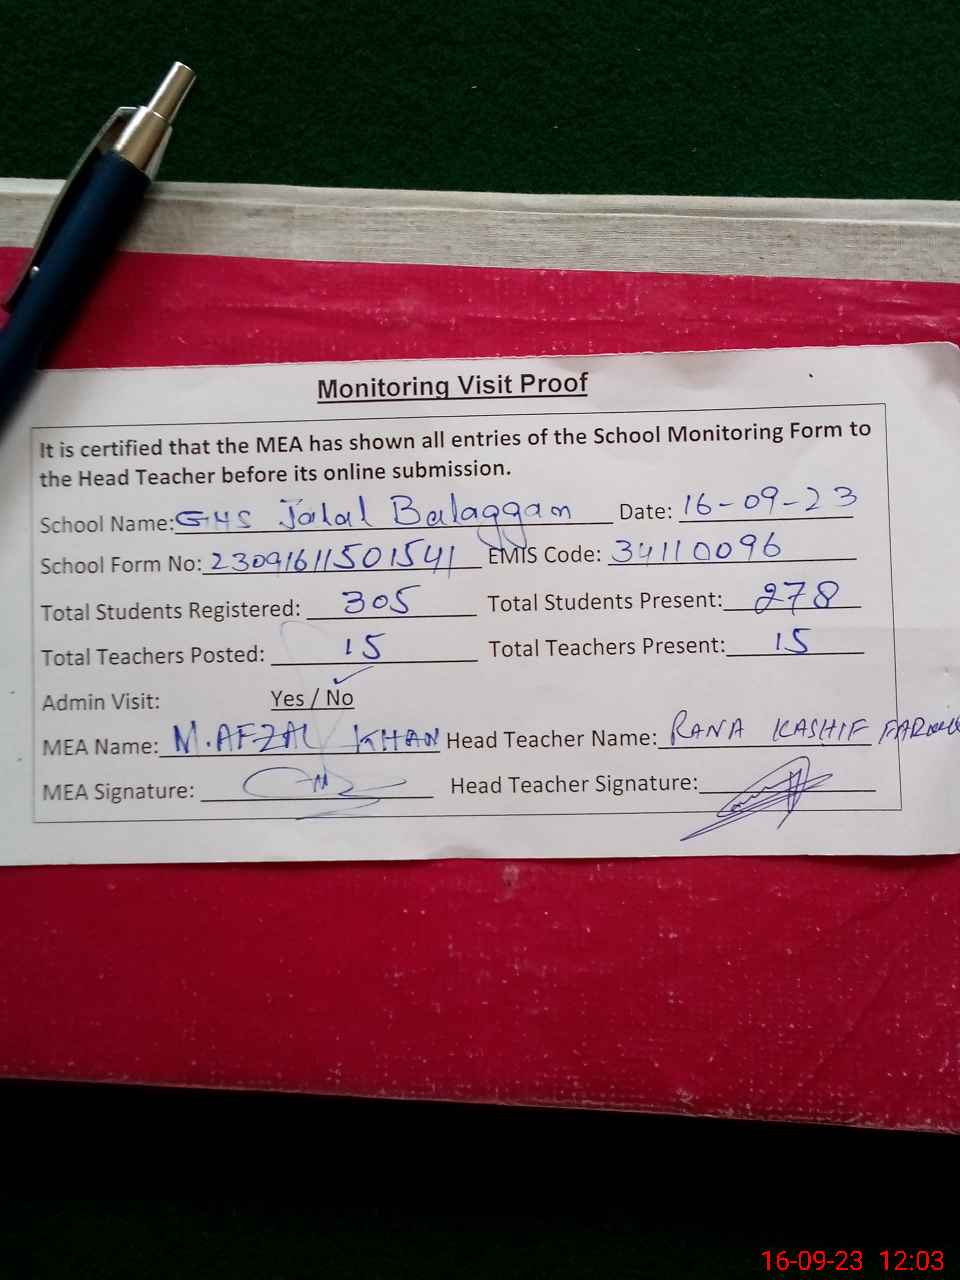 Monitoring Visit Proof
It is certified that the MEA has shown all entries of the School Monitoring Form to
the Head Teacher before its online submission.
School Name: GHS Jalal Balaggan Date: 16-09-23
School Form No: 23091611501541 EMIS Code: 34110096
Total Students Registered: 305 Total Students Present: 278
Total Teachers Posted: 15 Total Teachers Present: 15
Admin Visit: Yes / No
MEA Name: M.AFZAL KHAN Head Teacher Name: RANA KASHIF
MEA Signature: Head Teacher Signature:
16-09-23 12:03